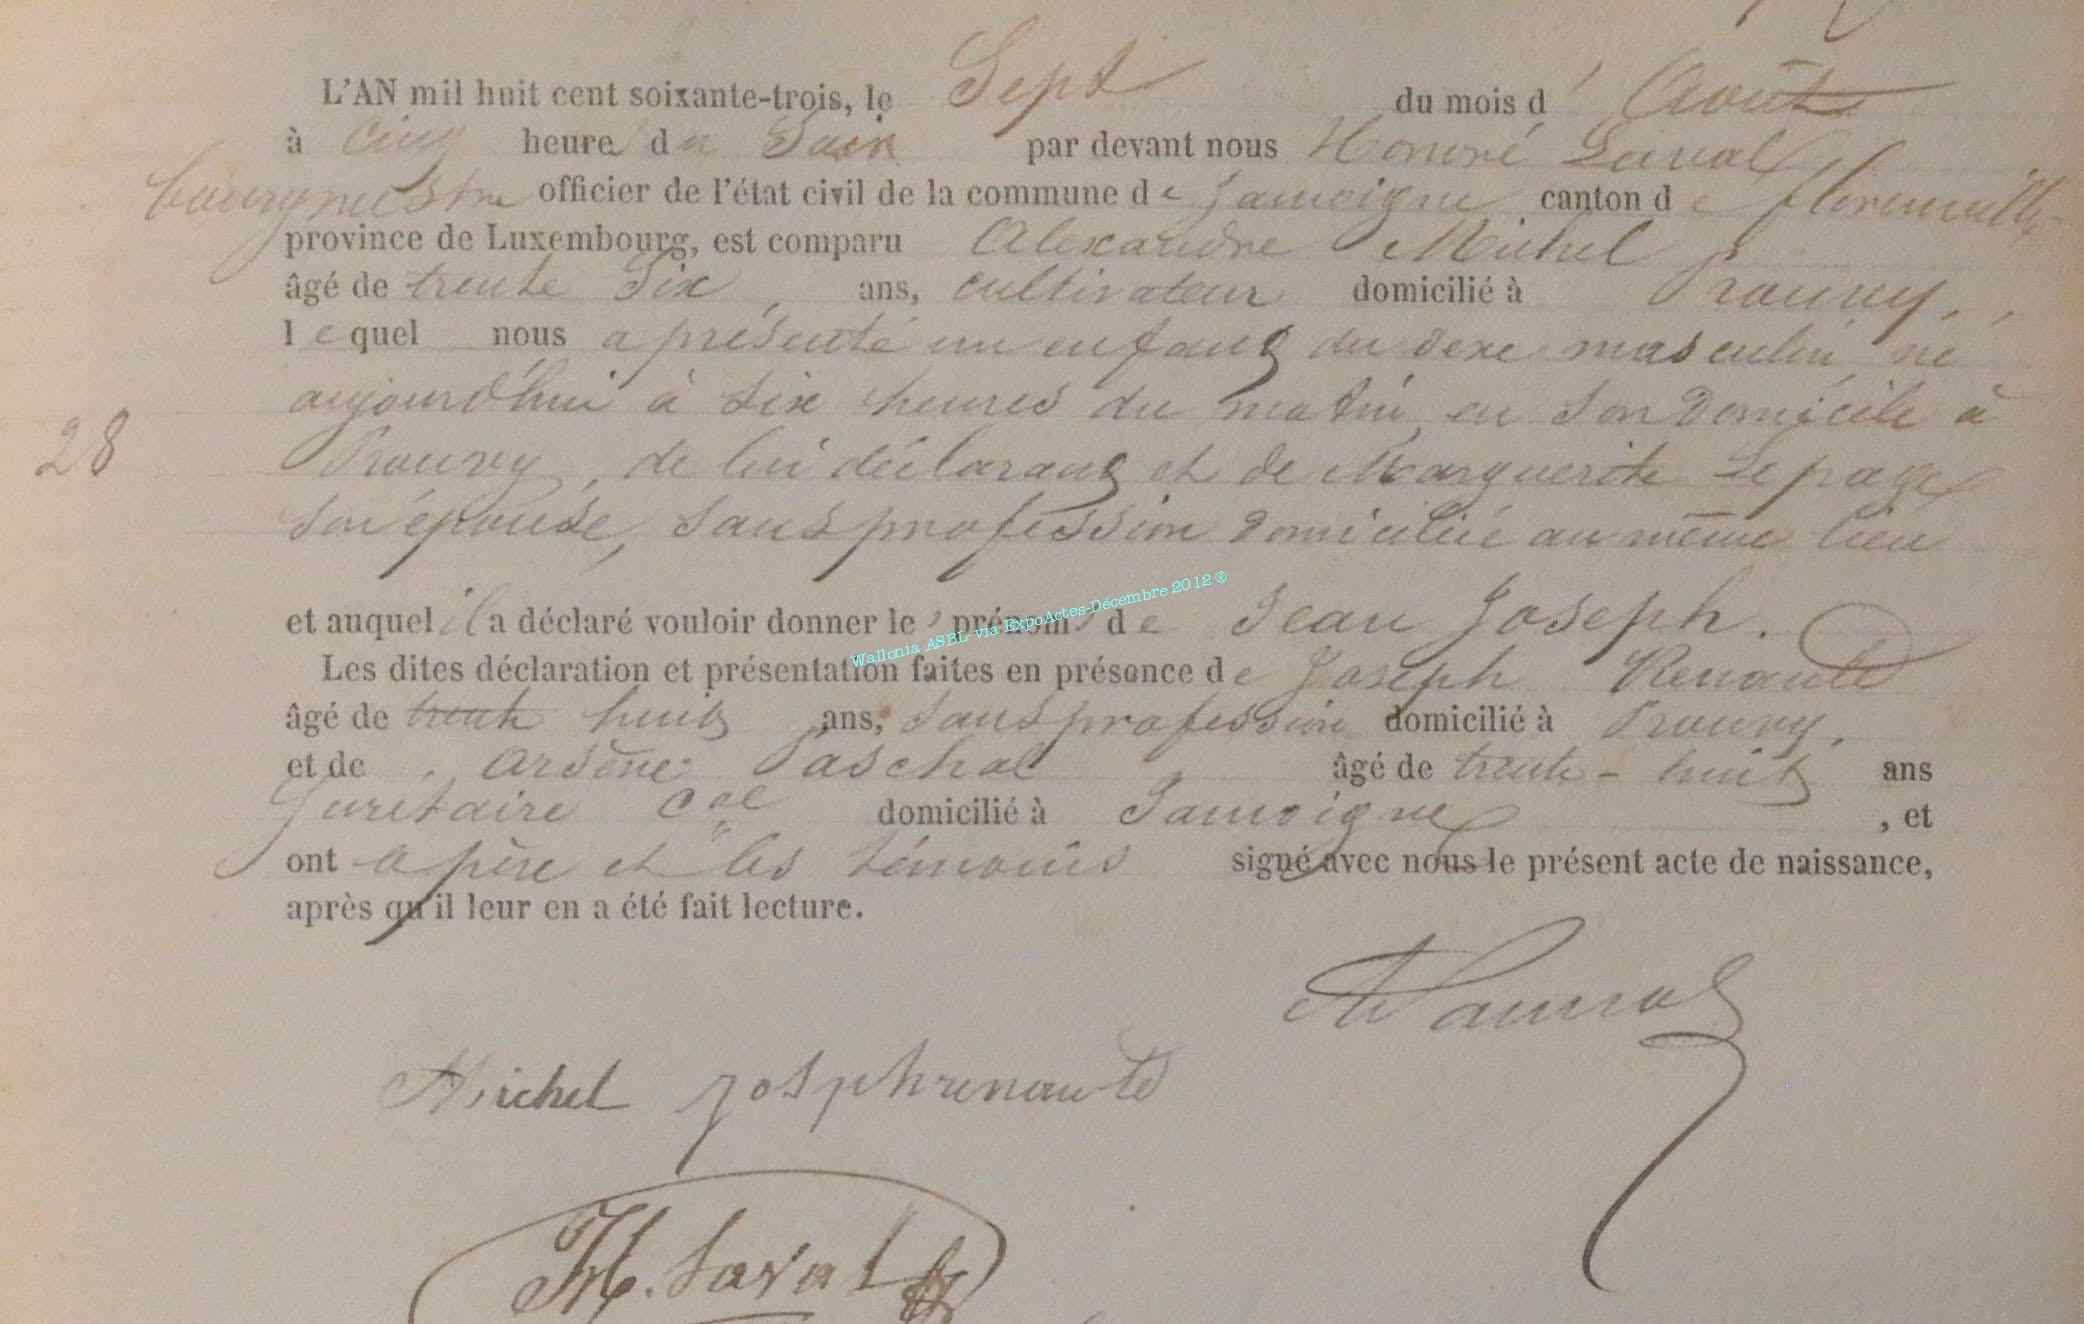 L'AN mil huit cent soixante-trois, le Sept du mois d'Août
à cinq heures du Soir par devant nous Honoré Laval
bourgmestre officier de l'état civil de la commune de Jamoigne canton de florenville
province de Luxembourg, est comparu Alexandre Michel
âgé de trente Six ans, cultivateur domicilié à Prouvy,
lequel nous a présenté un enfant du sexe masculin, né
aujourd'hui à six heures du matin, en son domicile à
28 Prouvy, de lui déclarant et de Marguerite Lepage
son épouse, sans profession domiciliée au même lieu
et auquel il a déclaré vouloir donner les prénoms de Jean Joseph.
Wallonia ASBL- via ExpoActes-Décembre 2012 ®
Les dites déclaration et présentation faites en présence de Joseph Renauld
âgé de trente huit ans, sans profession domicilié à Prouvy,
et de Arsène Paschal âgé de trente-huit ans
Secrétaire cal domicilié à Jamoigne, et
ont le père et les témoins signé avec nous le présent acte de naissance,
après qu'il leur en a été fait lecture.
Michel Josphrenauld
H. Laval